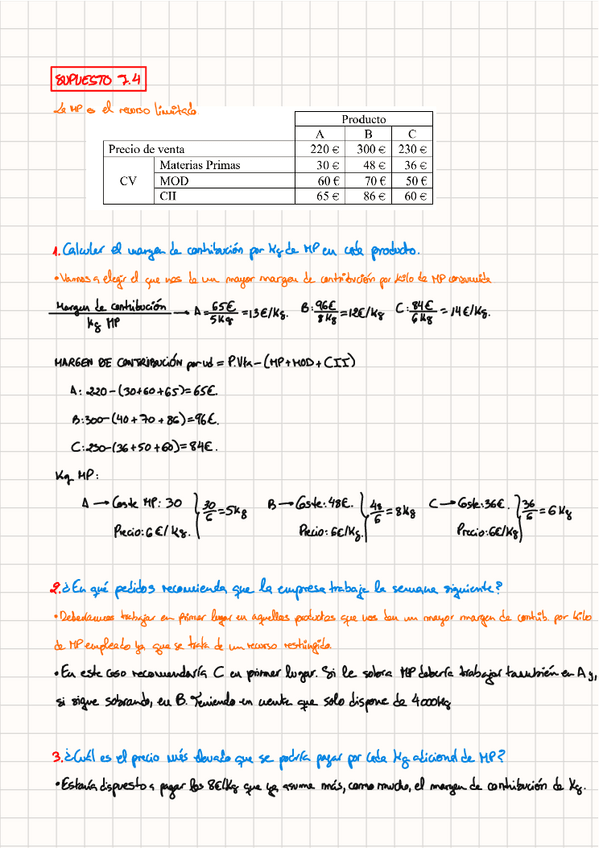 SUPUESTO 7.4
La MP es el recurso limitado
Producto
A B C
Precio de venta 220 € 300 € 230 €
CV Materias Primas 30 € 48 € 36 €
MOD 60 € 70 € 50 €
CII 65 € 86 € 60 €
1. Calcular el margen de contribución por Kg de MP en cada producto.
• Vamos a elegir el que nos de un mayor margen de contribución por kilo de MP consumida
Margen de contribución / Kg MP → A = 65€ / 5Kg = 13€/Kg. B: 96€ / 8Kg = 12€/Kg C: 84€ / 6Kg = 14€/Kg.
MARGEN DE CONTRIBUCIÓN por ud = P.Vta - (MP + MOD + CII)
A: 220 - (30+60+65) = 65€.
B: 300 - (40 + 70 + 86) = 96€.
C: 230 - (36 + 50 + 60) = 84€.
Kg MP:
A → Coste MP: 30 } 30/6 = 5Kg B → Coste: 48€. } 48/6 = 8Kg C → Coste: 36€. } 36/6 = 6Kg
Precio: 6€/Kg. Precio: 6€/Kg. Precio: 6€/Kg
2. ¿En qué pedidos recomienda que la empresa trabaje la semana siguiente?
• Deberíamos trabajar en primer lugar en aquellos productos que nos den un mayor margen de contrib. por kilo
de MP empleado ya que se trata de un recurso restringido
• En este caso recomendaría C en primer lugar. Si le sobra MP debería trabajar también en A y,
si sigue sobrando, en B. Teniendo en cuenta que solo dispone de 4000Kg
3. ¿Cuál es el precio más elevado que se podría pagar por cada Kg adicional de MP?
• Estaría dispuesto a pagar los 8€/Kg que ya asume más, como mucho, el margen de contribución de Kg.